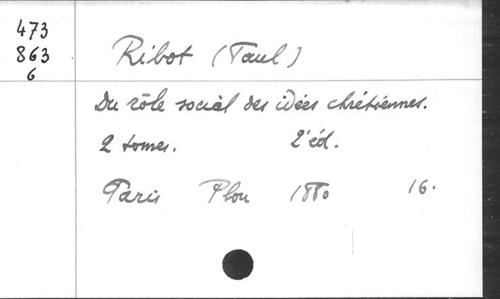 473
863
6
Ribot (Paul)
Du rôle social des idées chrétiennes.
2 tomes. 2'éd.
Paris Plon 1880 16.